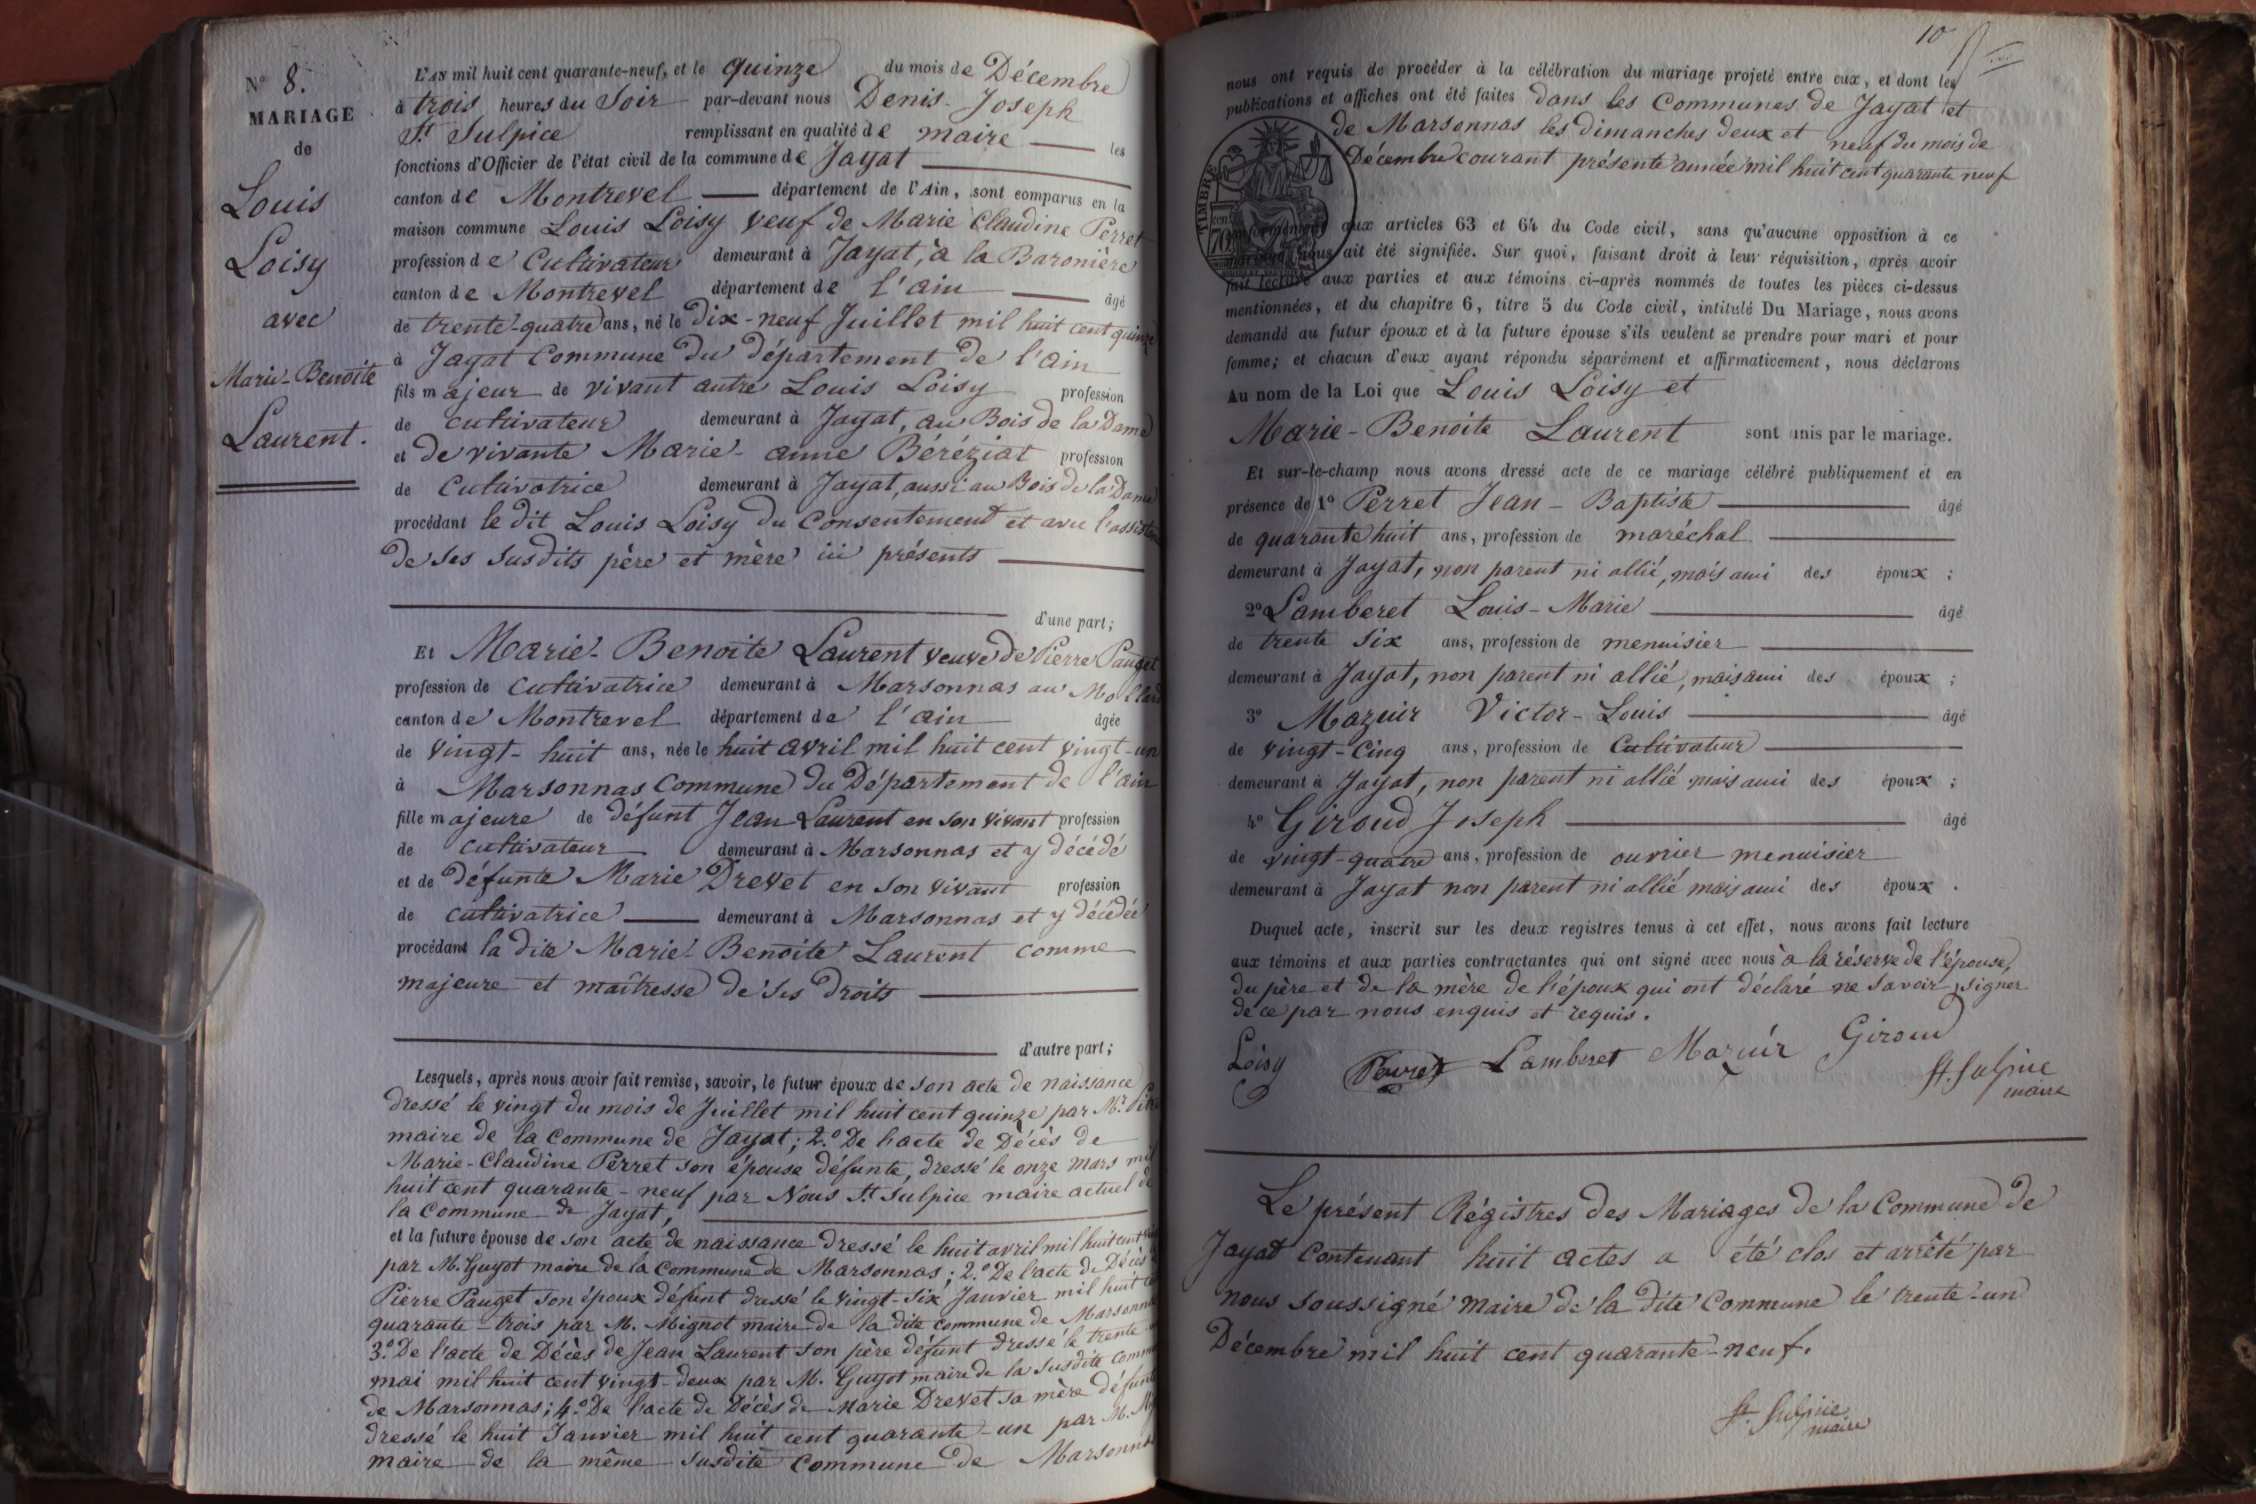 N° 8.
MARIAGE
de
Louis
Loisy
avec
Marie-Benoite
Laurent.
L'AN mil huit cent quarante-neuf, et le quinze du mois de Décembre
à trois heures du Soir par-devant nous Denis-Joseph
St. Sulpice remplissant en qualité de maire les
fonctions d'Officier de l'état civil de la commune de Jayat
canton de Montrevel département de l'Ain, sont comparus en la
maison commune Louis Loisy veuf de Marie Claudine Perret
profession de Cultivateur demeurant à Jayat, à la Baronière
canton de Montrevel département de l'ain âgé
de trente-quatre ans, né le dix-neuf Juillet mil huit cent quinze
à Jayat Commune du département de l'ain
fils majeur de vivant autre Louis Loisy profession
de cultivateur demeurant à Jayat, au Bois de la Dame
et de vivante Marie-anne Béréziat profession
de Cultivatrice demeurant à Jayat, aussi au Bois de la Dame
procédant le dit Louis Loisy du Consentement et avec l'assistan
de ses susdits père et mère ici présents
d'une part;
Et Marie-Benoite Laurent veuve de Pierre Pauget
profession de Cultivatrice demeurant à Marsonnas au Mollard
canton de Montrevel département de l'ain âgée
de vingt-huit ans, née le huit avril mil huit cent vingt-un
à Marsonnas Commune du Département de l'ain
fille majeure de défunt Jean Laurent en son vivant profession
de cultivateur demeurant à Marsonnas et y décédé
et de défunte Marie Drevet en son vivant profession
de cultivatrice demeurant à Marsonnas et y décédée
procédant la dite Marie-Benoite Laurent comme
majeure et maîtresse de ses droits
d'autre part;
Lesquels, après nous avoir fait remise, savoir, le futur époux de son acte de naissance
dressé le vingt du mois de Juillet mil huit cent quinze par Mr.
maire de la Commune de Jayat; 2.° De l'acte de Décès de
Marie-Claudine Perret son épouse défunte, dressé le onze Mars mil
huit cent quarante-neuf par Nous St. Sulpice maire actuel de
la Commune de Jayat,
et la future épouse de son acte de naissance dressé le huit avril mil huit cent
par M. Guyot maire de la Commune de Marsonnas; 2.° De l'acte de Décès
Pierre Pauget son époux défunt dressé le vingt-six Janvier mil huit
quarante-trois par M. Mignot maire de la dite commune de Marsonnas
3.° De l'acte de Décès de Jean Laurent son père défunt dressé le trente
mai mil huit cent vingt-deux par M. Guyot maire de la susdite comm
de Marsonnas; 4.° De l'acte de Décès de Marie Drevet sa mère défunte
dressé le huit Janvier mil huit cent quarante-un par M.
maire de la même susdite Commune de Marsonnas
10
nous ont requis de procéder à la célébration du mariage projeté entre eux, et dont les
publications et affiches ont été faites dans les Communes de Jayat et
de Marsonnas les dimanches deux et neuf du mois de
Décembre courant présente année mil huit cent quarante neuf
TIMBRE
70
conformément aux articles 63 et 64 du Code civil, sans qu'aucune opposition à ce
mariage nous ait été signifiée. Sur quoi, faisant droit à leur réquisition, après avoir
fait lecture aux parties et aux témoins ci-après nommés de toutes les pièces ci-dessus
mentionnées, et du chapitre 6, titre 5 du Code civil, intitulé Du Mariage, nous avons
demandé au futur époux et à la future épouse s'ils veulent se prendre pour mari et pour
femme; et chacun d'eux ayant répondu séparément et affirmativement, nous déclarons
Au nom de la Loi que Louis Loisy et
Marie-Benoite Laurent sont unis par le mariage.
Et sur-le-champ nous avons dressé acte de ce mariage célébré publiquement et en
présence de 1° Perret Jean-Baptiste âgé
de quarante huit ans, profession de maréchal
demeurant à Jayat, non parent ni allié, mais ami des époux;
2° Lamberet Louis-Marie âgé
de trente six ans, profession de menuisier
demeurant à Jayat, non parent ni allié, mais ami des époux;
3° Mazuir Victor-Louis âgé
de vingt-cinq ans, profession de Cultivateur
demeurant à Jayat, non parent ni allié mais ami des époux;
4° Giroud Joseph âgé
de vingt-quatre ans, profession de ouvrier menuisier
demeurant à Jayat non parent ni allié mais ami des époux.
Duquel acte, inscrit sur les deux registres tenus à cet effet, nous avons fait lecture
aux témoins et aux parties contractantes qui ont signé avec nous à la réserve de l'épouse,
du père et de la mère de l'époux qui ont déclaré ne savoir signer
de ce par nous enquis et requis.
Loisy Perret Lamberet Mazuir Giroud
St. Sulpice
maire
Le présent Régistres des Mariages de la Commune de
Jayat Contenant huit actes a été clos et arrêté par
nous soussigné Maire de la dite Commune le trente-un
Décembre mil huit cent quarante-neuf.
St. Sulpice
maire